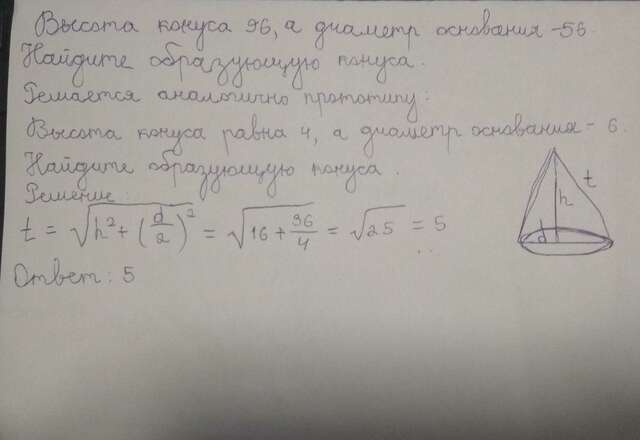 Высота конуса 96, а диаметр основания -56.
Найдите образующую конуса.
Решается аналогично прототипу:
Высота конуса равна 4, а диаметр основания - 6.
Найдите образующую конуса.
Решение:
t = √(h² + (d/2)²) = √(16 + 36/4) = √25 = 5
Ответ: 5
t
h
d